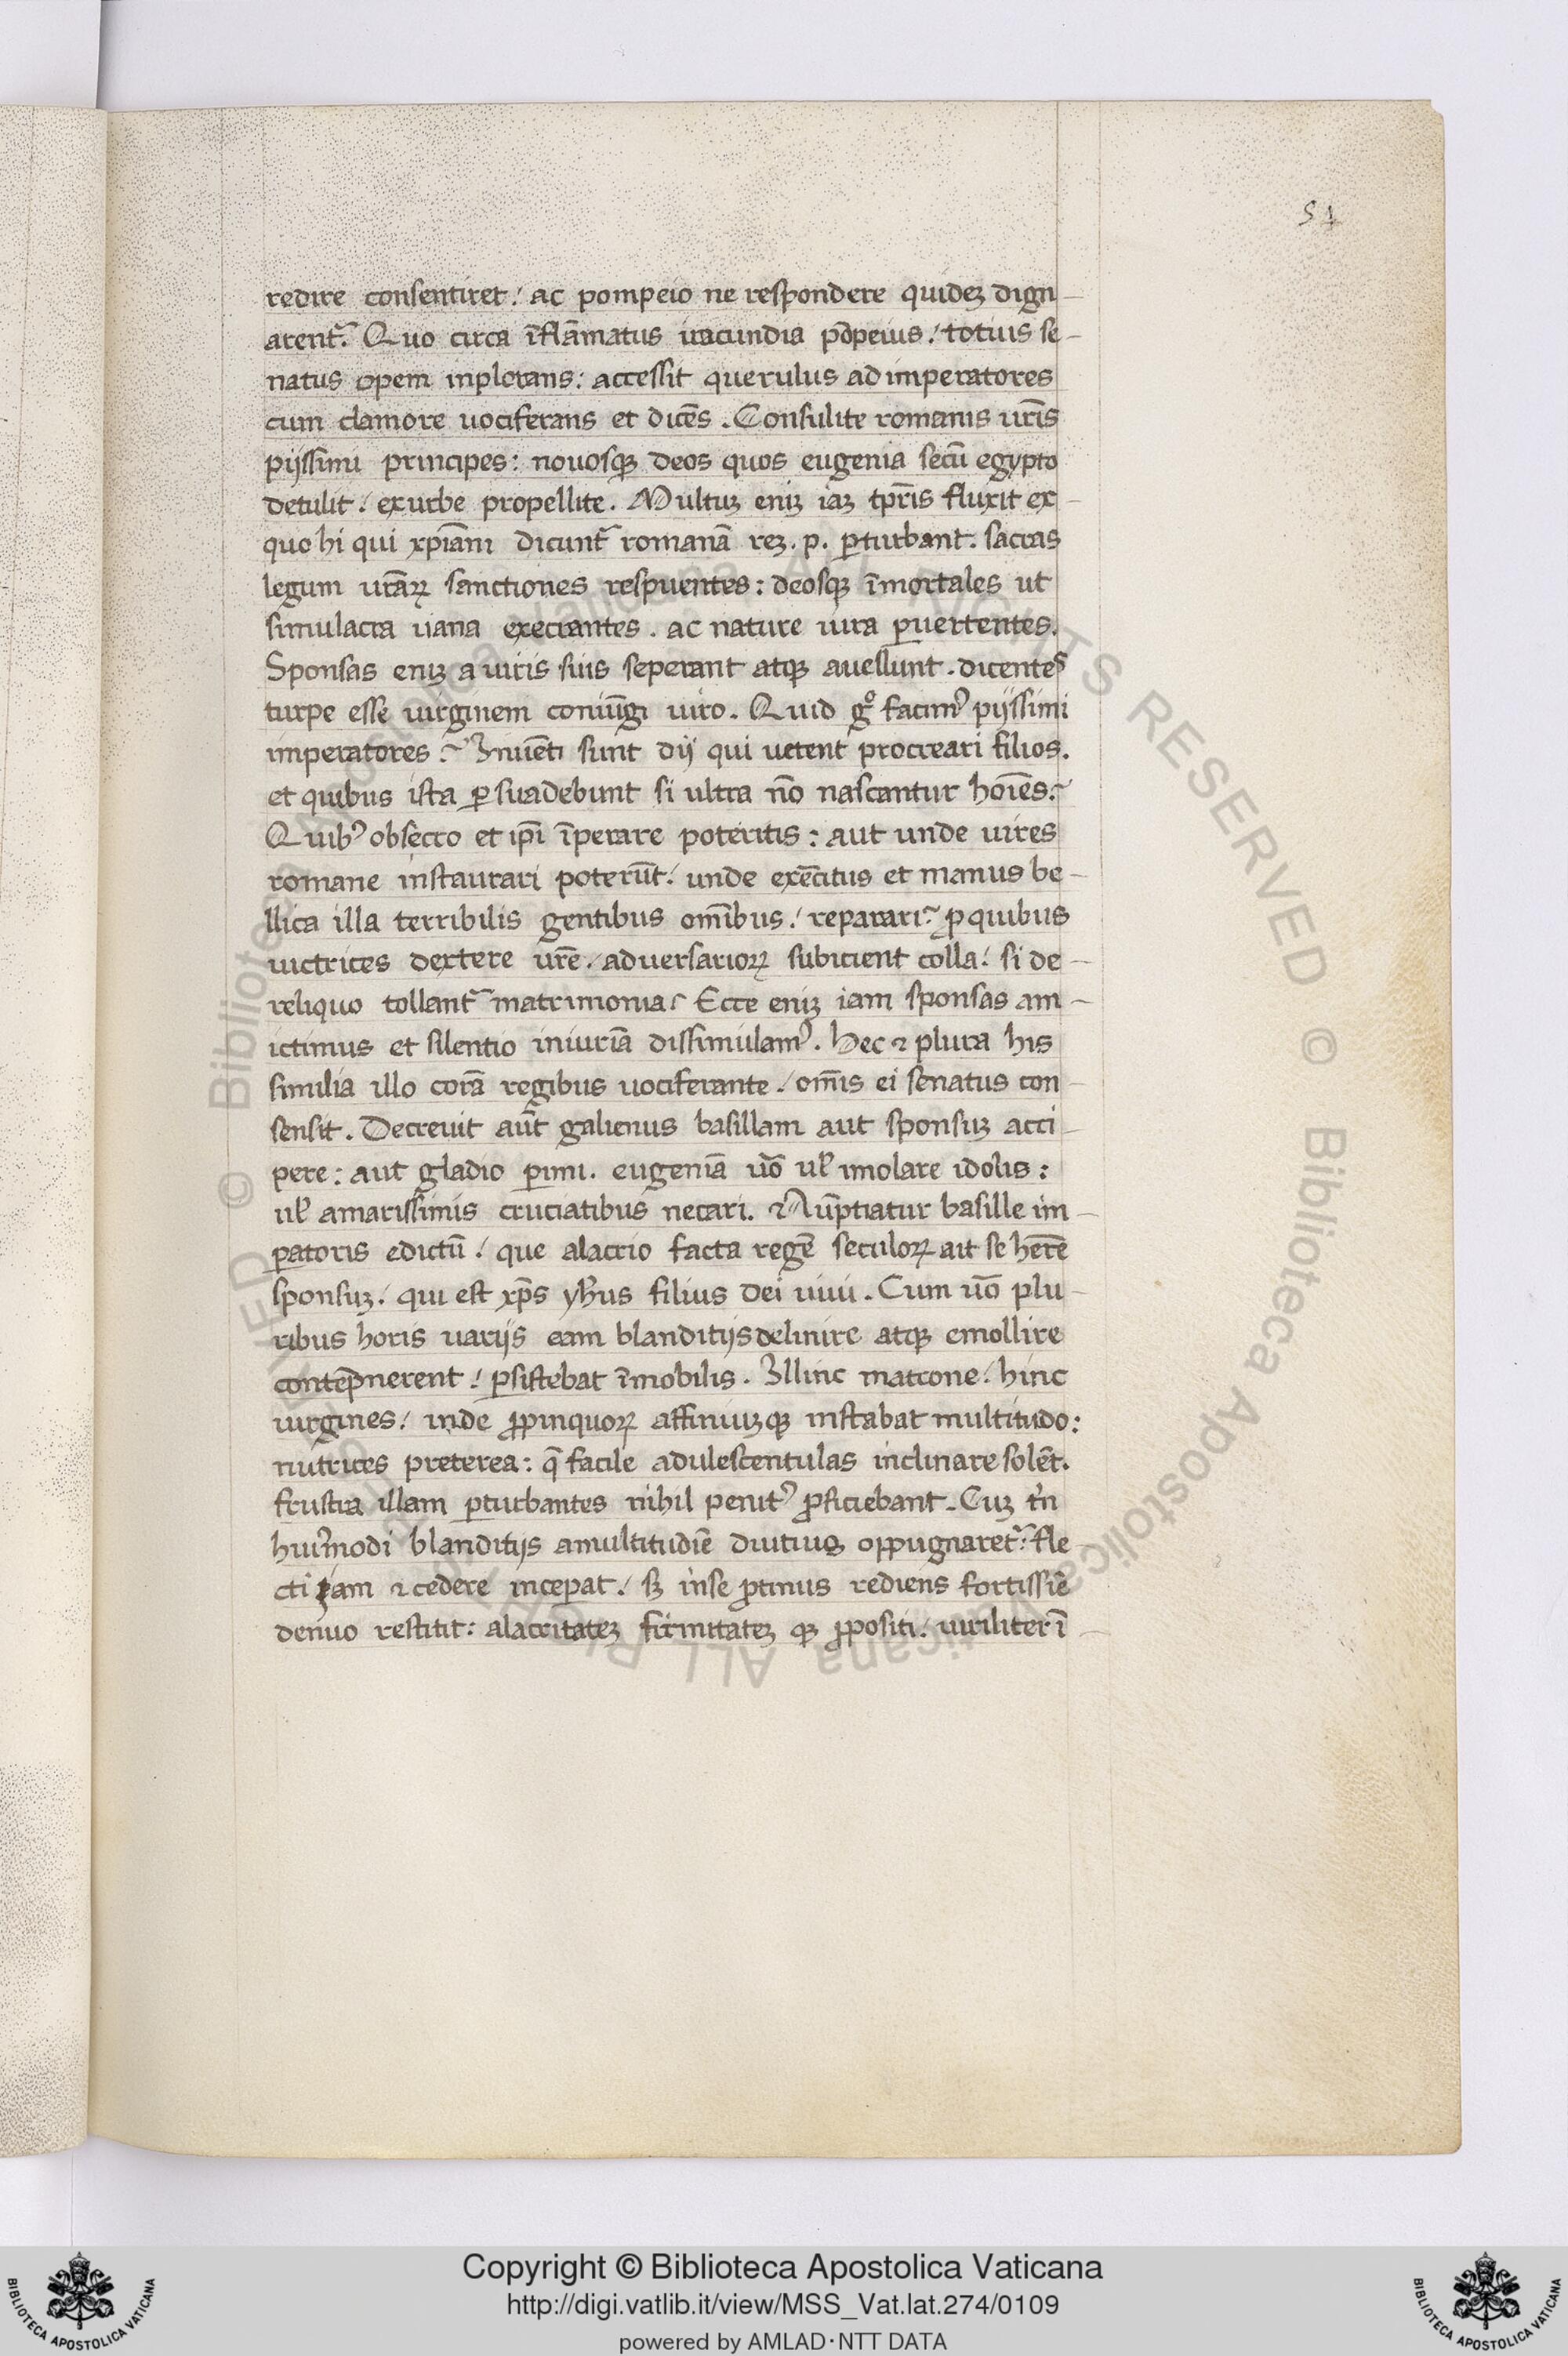 51
redire consentiret / ac pompeio ne respondere quideꝫ dign-
arentᷣ. Quo circa īflāmatus iracundia pōpeius / totius se-
natus opem inplorans : accessit querulus ad imperatores
cum clamore uociferans et dicēs . Consulite romanis ur̄is
pijssimi principes : nouosqꝫ deos quos eugenia secū egypto
detulit / ex urbe propellite . Multuꝫ eniꝫ iaꝫ tpr̄is fluxit ex-
quo hi qui xp̄iani dicuntᷣ romanā reꝫ . p . ꝑturbant . sacras
legum ur̄aꝝ sanctiones respuentes : deosqꝫ īmortales ut
simulacra uana execrantes . ac nature iura ꝑuertentes .
Sponsas eniꝫ a uiris suis seperant atqꝫ auellunt . dicentes
turpe esse uirginem coniūgi uiro . Quid gͦ facimꝰ pijssimi
imperatores ? Inuēti sunt dij qui uetent procreari filios .
et quibus ista ꝑsuadebunt si ultra nō nascantur hoīes ?
Quibꝰ obsecro et ip̄i īperare poteritis : aut unde uires
romane instaurari poterūt / unde exercitus et manus be-
llica illa terribilis gentibus om̄ibus / reparari ? ꝓ quibus
uictrices dextere ur̄e / aduersarioꝝ subicient colla / si de-
reliquo tollantᷣ matrimonia ? Ecce eniꝫ iam sponsas am-
ictimus et silentio iniuriā dissimulamꝰ . Hec ⁊ plura his
similia illo corā regibus uociferante / om̄is ei senatus con-
sensit . Decreuit aūt galienus basillam aut sponsuꝫ acci-
pere : aut gladio ꝑimi . eugeniā uō ul̄ imolare idolis :
ul̄ amarissimis cruciatibus necari . ⁊ Nūptiatur basille im-
ꝑatoris edictū / que alacrio facta regē seculoꝝ ait se her̄e
sponsuꝫ / qui est xp̄s yh̄us filius dei uiui . Cum uō plu-
ribus horis uarijs eam blanditijs delinire atqꝫ emollire
contēpnerent / ꝑsistebat īmobilis . Illinc matrone / hinc
uirgines / inde ꝓpinquoꝝ affiniuꝫqꝫ instabat multitudo :
nutrices preterea : q̄ facile adulescentulas inclinare solēt .
frustra illam ꝑturbantes nihil penitꝰ ꝓficiebant . Cuꝫ tn̄
huiꝰmodi blanditijs a multitudīe diutius oppugnaretᷣ : fle-
cti iam ⁊ cedere inceꝑat / sꝫ in se ꝓtinus rediens fortissīe
denuo restitit : alacritateꝫ firmitateꝫ qꝫ ꝓpositi / uiriliter ī-
© Biblioteca Apostolica Vaticana ALL RIGHTS RESERVED © Biblioteca Apostolica Vaticana ALL RIGHTS RESERVED
Copyright © Biblioteca Apostolica Vaticana
http://digi.vatlib.it/view/MSS_Vat.lat.274/0109
powered by AMLAD·NTT DATA
BIBLIOTECA APOSTOLICA VATICANA
BIBLIOTECA APOSTOLICA VATICANA